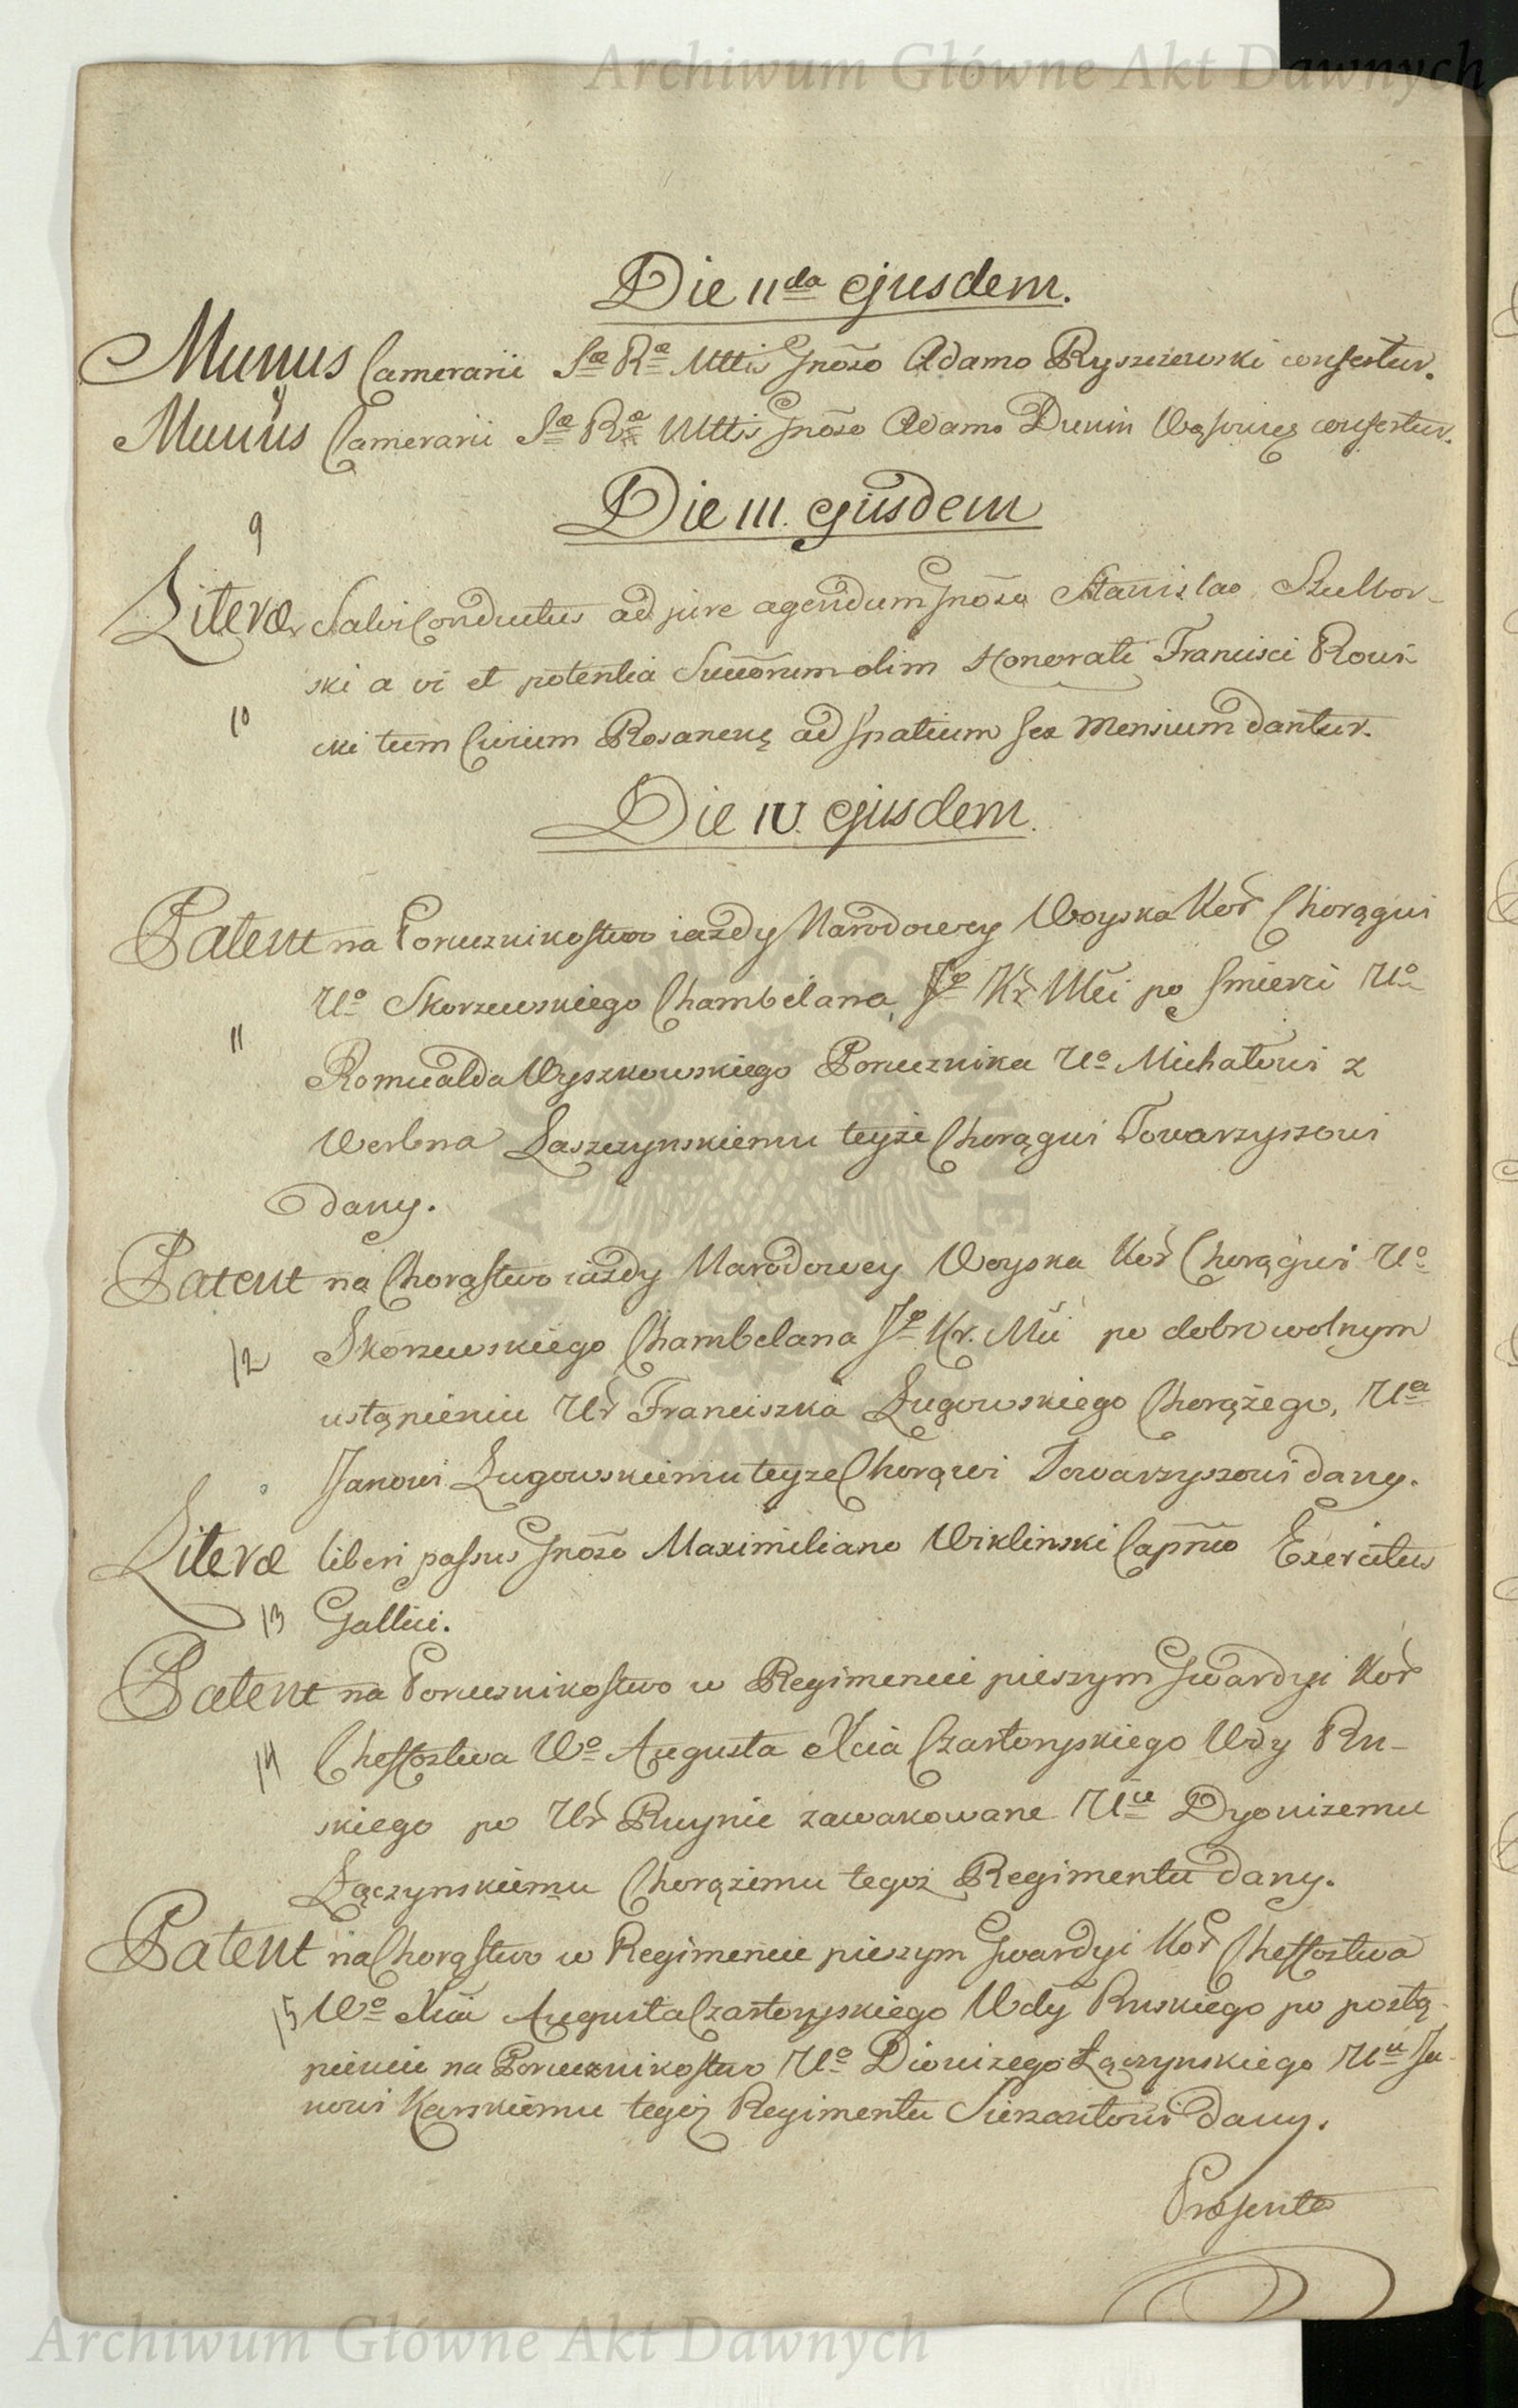 Archiwum Główne Akt Dawnych
Die IIda ejusdem.
Munus Camerarii Sæ Ræ Mttis Gnoso Adamo Ryszczewski confertur.
Munus Camerarii Sæ Ræ Mttis Gnoso Adamo Dunin Wąsowicz confertur.
Die III. ejusdem
9
Literæ Salvi Conductus ad jure agendum Gnoso Stanislao Szulbor-
ski a vi et potentia Succorum olim Honorati Francisci
10
cki tum Civium ad spatium sex Mensium dantur.
Die IV. ejusdem.
Patent na Porucznikostwo iazdy Narodowey Woyska Kor Chorągwi
Uo Skorzewskiego Chambelana Jo Kr Mci po smierci Uo
11
Romualda Wyszkowskiego Porucznika Uo Michałowi z
Werbna Łaszczynskiemu teyże Chorągwi Towarzyszowi
dany.
Patent na Chorąstwo iazdy Narodowey Woyska Kor Chorągwi Uo
12 Skorzewskiego Chambelana Jo Kr. Mci po dobrowolnym
ustąpieniu Ur Franciszka Ługowskiego Chorążego, Ua
Janowi Ługowskiemu teyze Chorąwi Towarzyszowi dany.
Literæ liberi passus Gnoso Maximiliano Wiklinski Capneo Exercitus
13 Gallici.
Patent na Porucznikostwo w Regimencie pieszym Gwardyi Kor
14 Cheffostwa Wo Augusta Xcia Czartoryskiego Wdy Ru-
skiego po Ur Ruynie zawakowane Uu Dyonizemu
Łączynskiemu Chorążemu tegoż Regimentu dany.
Patent na Chorąstwo w Regimencie pieszym Gwardyi Kor Cheffostwa
15 Wo Xcia Augusta Czartoryskiego Wdy Ruskiego po postą-
pieniu na Porucznikostwo Uo Dionizego Łączynskiego Uu Ja-
nowi Karskiemu tegoż Regimentu Sierzantowi dany.
Præsenta
Archiwum Główne Akt Dawnych